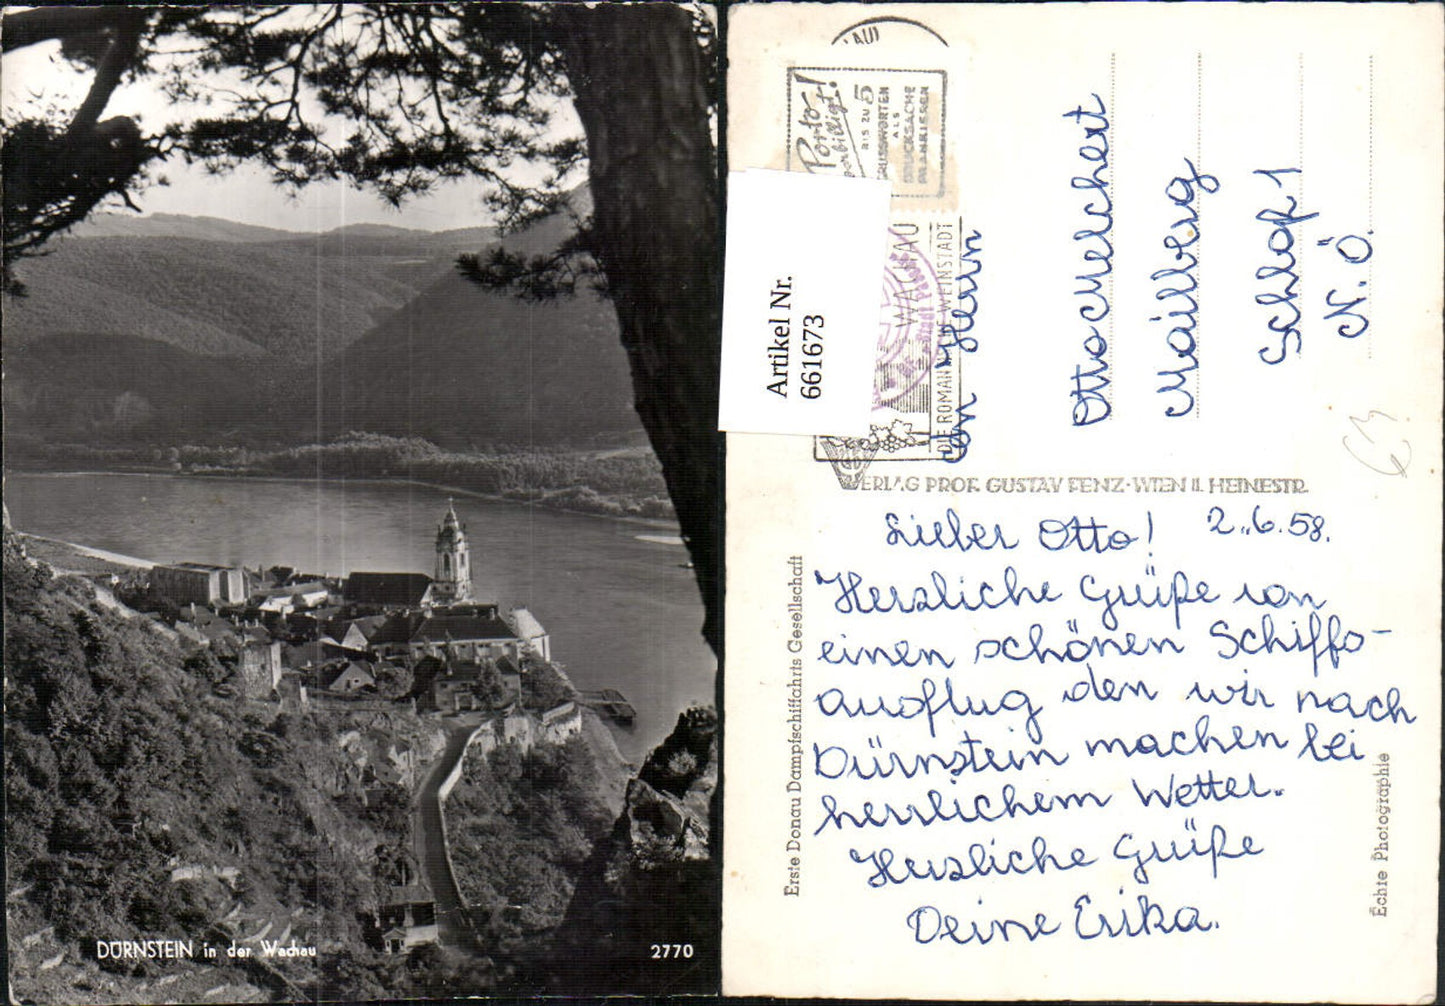 DÜRNSTEIN in der Wachau
2770
Porto
verbilligt!
BIS ZU 5
GRUSSWORTEN
ALS
DRUCKSACHE
FRANKIEREN
WACHAU
DIE ROMANTISCHE WEINSTADT
Artikel Nr.
661673
An Herrn
Otto Melchert
Mailberg
Schloß 1
N.Ö.
VERLAG PROF. GUSTAV FENZ·WIEN II. HEINESTR.
Erste Donau Dampfschiffahrts Gesellschaft
Lieber Otto! 2.6.58.
Herzliche Grüße von
einen schönen Schiffs-
ausflug den wir nach
Dürnstein machen bei
herrlichem Wetter.
Herzliche Grüße
Deine Erika.
Echte Photographie